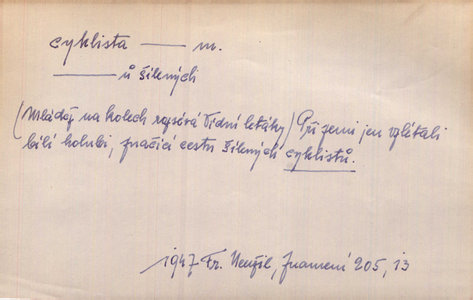 cyklista — m.
— ů šílených
(Mládež na kolech rozsévá třídní letáky) Při zemi jen vzlétali
bílí holubi, značící cestu šílených cyklistů.
1947 Fr. Neužil, Znamení 205, 13